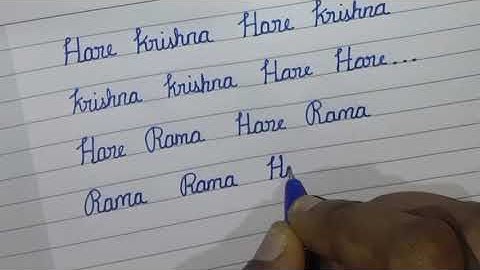 Hare Krishna Hare Krishna
Krishna Krishna Hare Hare...
Hare Rama Hare Rama
Rama Rama H